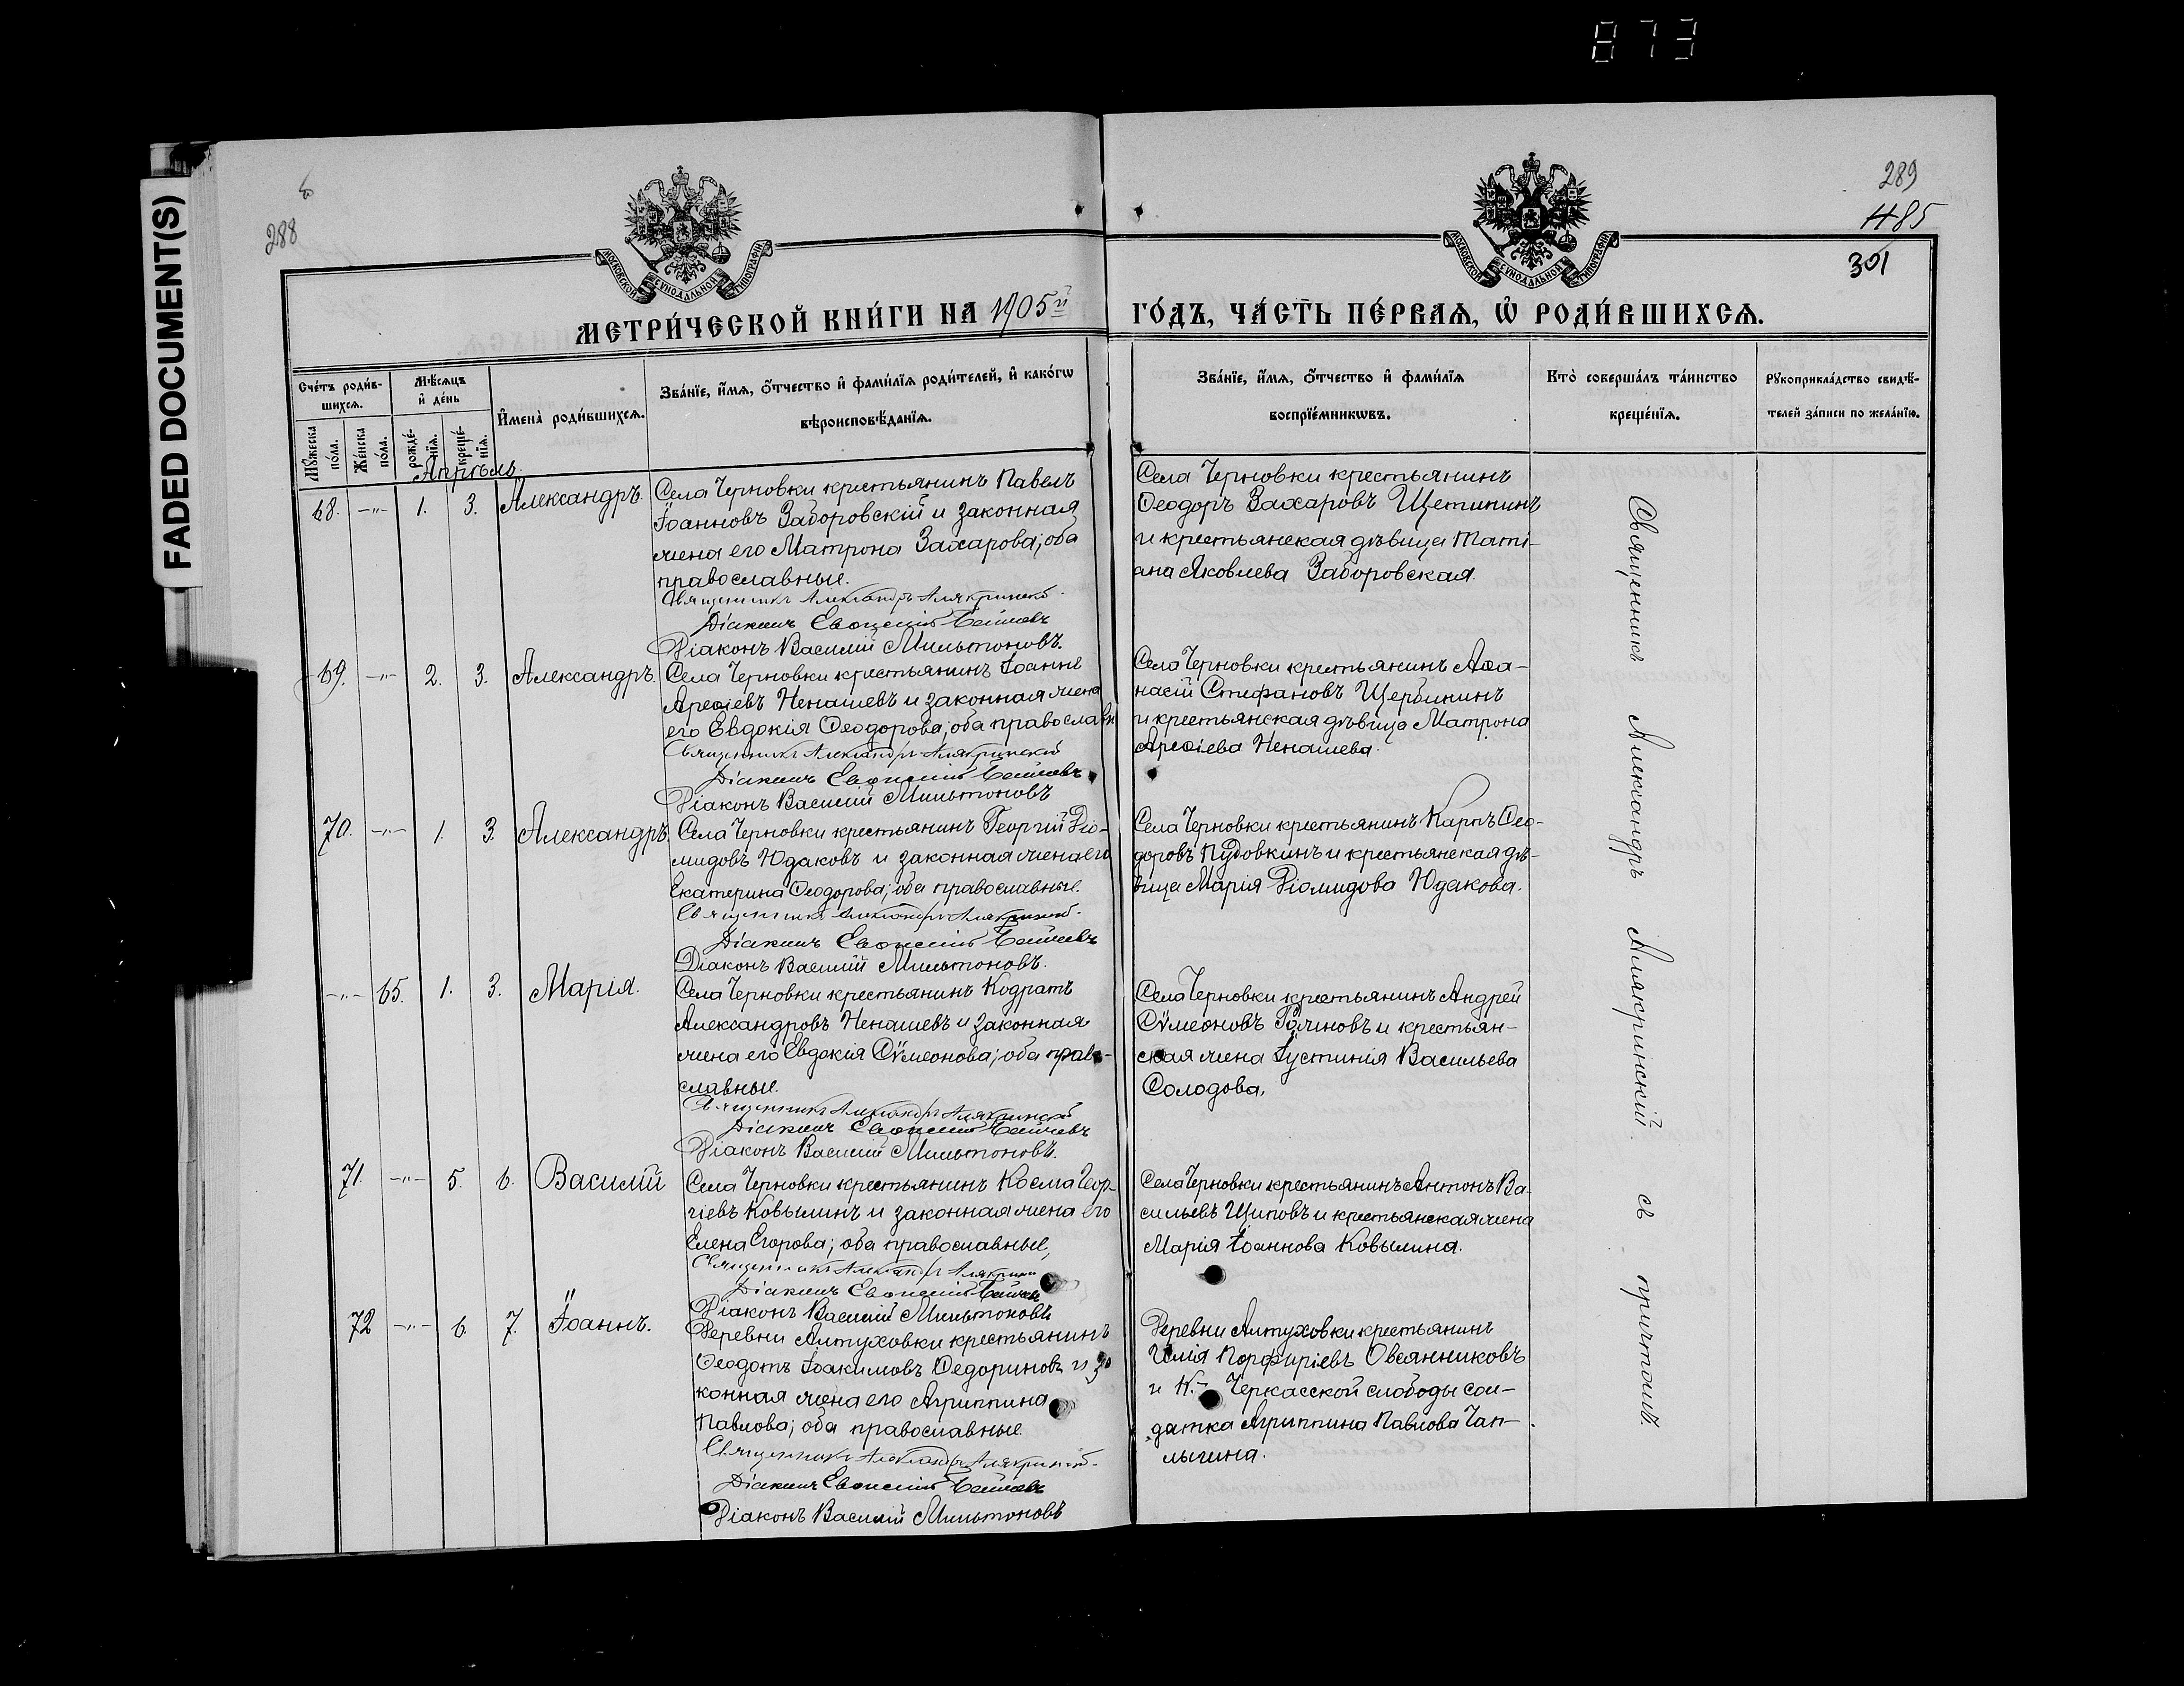 873
FADED DOCUMENT(S)
288
289
485
301
МОСКОВСКОЙ СѴНОДАЛЬНОЙ ТИПОГРАФІИ
МОСКОВСКОЙ СѴНОДАЛЬНОЙ ТИПОГРАФІИ
МЕТРИ́ЧЕСКОЙ КНИ́ГИ НА 1905й ГО́ДЪ, ЧА́СТЬ ПЕ́РВАѦ, Ѡ҆ РОДИ́ВШИХСѦ.
Сче́тъ роди́в-
шихсѧ.
Мꙋ́жеска по́ла.
Же́нска по́ла.
Мѣ́сѧцъ
и҆ де́нь
рожде́-
нїѧ.
креще́-
нїѧ.
И҆мена̀ роди́вшихсѧ.
Зва́нїе, и҆́мѧ, ѻ҆́тчество и҆ фами́лїѧ роди́телей, и҆ како́гѡ
вѣроисповѣ́данїѧ.
Зва́нїе, и҆́мѧ, ѻ҆́тчество и҆ фами́лїѧ
воспрїе́мникѡвъ.
Кто̀ соверша́лъ та́инство
креще́нїѧ.
Рꙋкоприкла́дство свидѣ́-
телей за́писи по жела́нїю.
Апрѣль.
68. —"— 1. 3. Александръ.
Села Черновки крестьянинъ Павелъ
Іоанновъ Заборовскій и законная
жена его Матрона Захарова; оба
православные.
Священникъ Александръ Алякринскій.
Діаконъ Евѳимій
Діаконъ Василій Мильтоновъ.
Села Черновки крестьянинъ
Ѳеодоръ Захаровъ Щетининъ
и крестьянская дѣвица Таті-
ана Яковлева Заборовская.
69. —"— 2. 3. Александръ.
Села Черновки крестьянинъ Іоаннъ
Ареѳіевъ Ненашевъ и законная жена
его Евдокія Ѳеодорова; оба православн
Священникъ Александръ Алякринскій
Діаконъ Евѳимій
Діаконъ Василій Мильтоновъ
Села Черновки крестьянинъ Аѳа-
насій Стефановъ Щербининъ
и крестьянская дѣвица Матрона
Ареѳіева Ненашева.
70. —"— 1. 3 Александръ.
Села Черновки крестьянинъ Георгій Діо-
мидовъ Юдаковъ и законная жена его
Екатерина Ѳеодорова; оба православные.
Священникъ Александръ Алякринскій.
Діаконъ Евѳимій
Діаконъ Василій Мильтоновъ.
Села Черновки крестьянинъ Карпъ Ѳео-
доровъ Пудовкинъ и крестьянская дѣ-
вица Марія Діомидова Юдакова.
—"— 65. 1. 3. Марія.
Села Черновки крестьянинъ Кодратъ
Александровъ Ненашевъ и законная
жена его Евдокія Сѵмеонова; оба право-
славные.
Священникъ Александръ Алякринскій
Діаконъ Евѳимій
Діаконъ Василій Мильтоновъ.
Села Черновки крестьянинъ Андрей
Сѵмеоновъ и крестьян-
ская жена Іустинія Васильева
Солодова.
71. —"— 5. 6. Василій
Села Черновки крестьянинъ Косма Геор-
гіевъ Ковылинъ и законная жена его
Елена Егорова; оба православные,
Священникъ Александръ
Діаконъ Евѳимій
Діаконъ Василій Мильтоновъ
Села Черновки крестьянинъ Антонъ Ва-
сильевъ Щиповъ и крестьянская жена
Марія Іоаннова Ковылина.
72 —"— 6. 7. Іоаннъ.
Деревни Алтуховки крестьянинъ
Ѳеодотъ Іоакимовъ Ѳедориновъ и за
конная жена его Агриппина
Павлова; оба православные.
Священникъ Александръ Алякринскій.
Діаконъ Евѳимій
Діаконъ Василій Мильтоновъ
Деревни Алтуховки крестьянинъ
Илія Порфиріевъ Овсянниковъ
и К.- Черкасской слободы сол-
датка Агриппина Павлова Чап-
лыгина.
Священникъ Александръ Алякринскій съ причтомъ